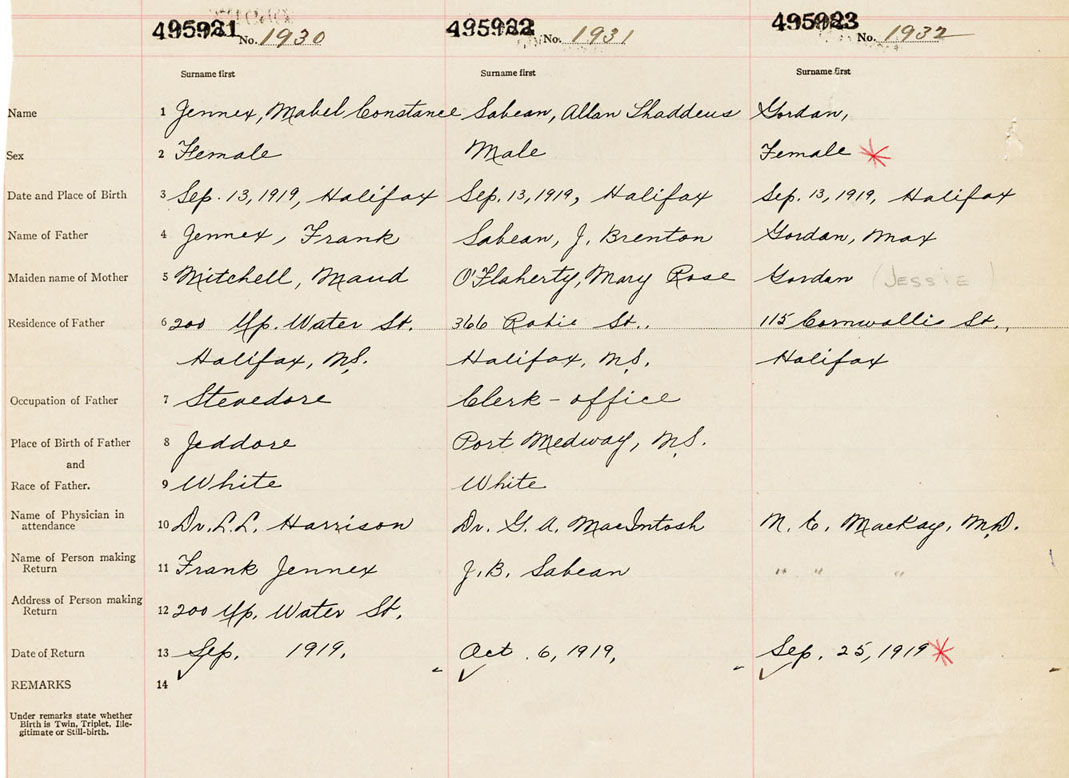 495921 No. 1930 495922 No. 1931 495923 No. 1932
Surname first Surname first Surname first
Name 1 Jennex, Mabel Constance Sabean, Allan Thaddeus Gordan,
Sex 2 Female Male Female *
Date and Place of Birth 3 Sep. 13, 1919, Halifax Sep. 13, 1919, Halifax Sep. 13, 1919, Halifax
Name of Father 4 Jennex, Frank Sabean, J. Brenton Gordan, Max
Maiden name of Mother 5 Mitchell, Maud O'Flaherty, Mary Rose Gordan (JESSIE)
Residence of Father 6 200 Up. Water St. 366 Robie St., 115 Cornwallis St.,
Halifax, N.S. Halifax, N.S. Halifax
Occupation of Father 7 Stevedore Clerk - office
Place of Birth of Father 8 Jeddore Port Medway, N.S.
and
Race of Father. 9 White White
Name of Physician in
attendance 10 Dr. L.L. Harrison Dr. G. A. MacIntosh N. E. MacKay, M.D.
Name of Person making
Return 11 Frank Jennex J.B. Sabean " " "
Address of Person making
Return 12 200 Up. Water St.
Date of Return 13 Sep. 1919. Oct. 6, 1919, Sep. 25, 1919 *
REMARKS 14
Under remarks state whether
Birth is Twin, Triplet, Ille-
gitimate or Still-birth.